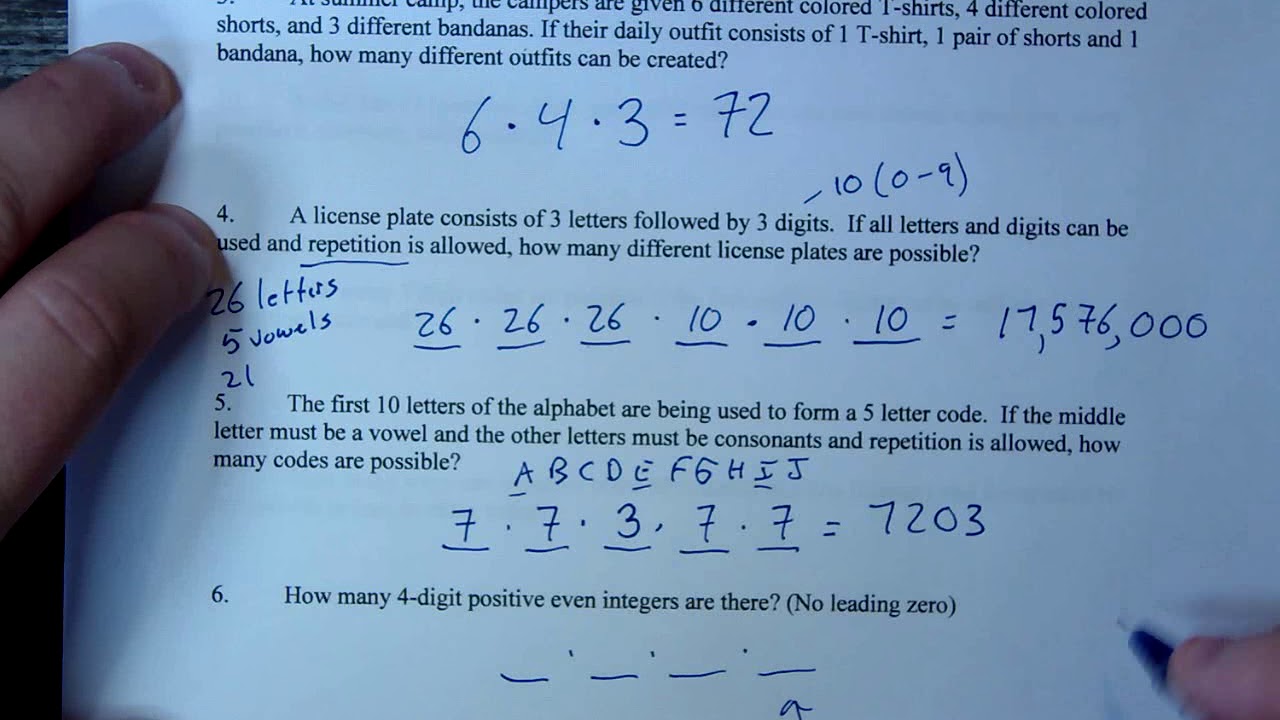 At summer camp, the campers are given 6 different colored T-shirts, 4 different colored
shorts, and 3 different bandanas. If their daily outfit consists of 1 T-shirt, 1 pair of shorts and 1
bandana, how many different outfits can be created?
6 · 4 · 3 = 72
10 (0-9)
4. A license plate consists of 3 letters followed by 3 digits. If all letters and digits can be
used and repetition is allowed, how many different license plates are possible?
26 letters
5 vowels
21
26 · 26 · 26 · 10 · 10 · 10 = 17,576,000
5. The first 10 letters of the alphabet are being used to form a 5 letter code. If the middle
letter must be a vowel and the other letters must be consonants and repetition is allowed, how
many codes are possible?
A B C D E F G H I J
7 · 7 · 3 · 7 · 7 = 7203
6. How many 4-digit positive even integers are there? (No leading zero)